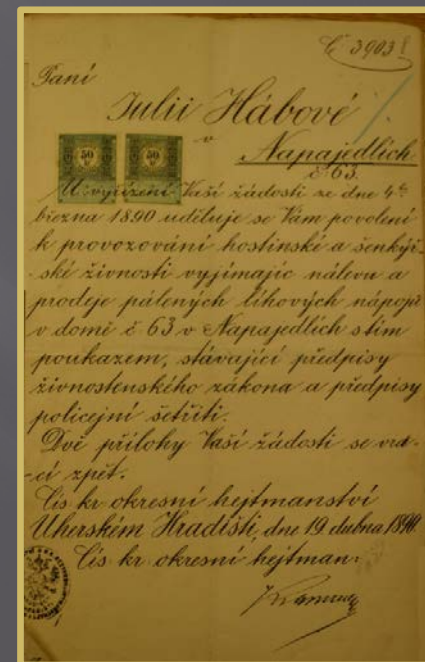 Č 3903
Paní
Julii Hábové
v
Napajedlích
č 63.
50
50
U vyřízení Vaší žádosti ze dne 4ho
března 1890 uděluje se Vám povolení
k provozování hostinské a šenkýř-
-ské živnosti vyjímajíc nálevu a
prodeje pálených líhových nápojů
v domě č 63 v Napajedlích s tím
poukazem, stávající předpisy
živnostenského zákona a předpisy
policejní šetřiti.
Dvě přílohy Vaší žádosti se vra-
-cí zpět.
Cís kr okresní hejtmanství
Uherském Hradišti, dne 19 dubna 1890.
Cís kr okresní hejtman: